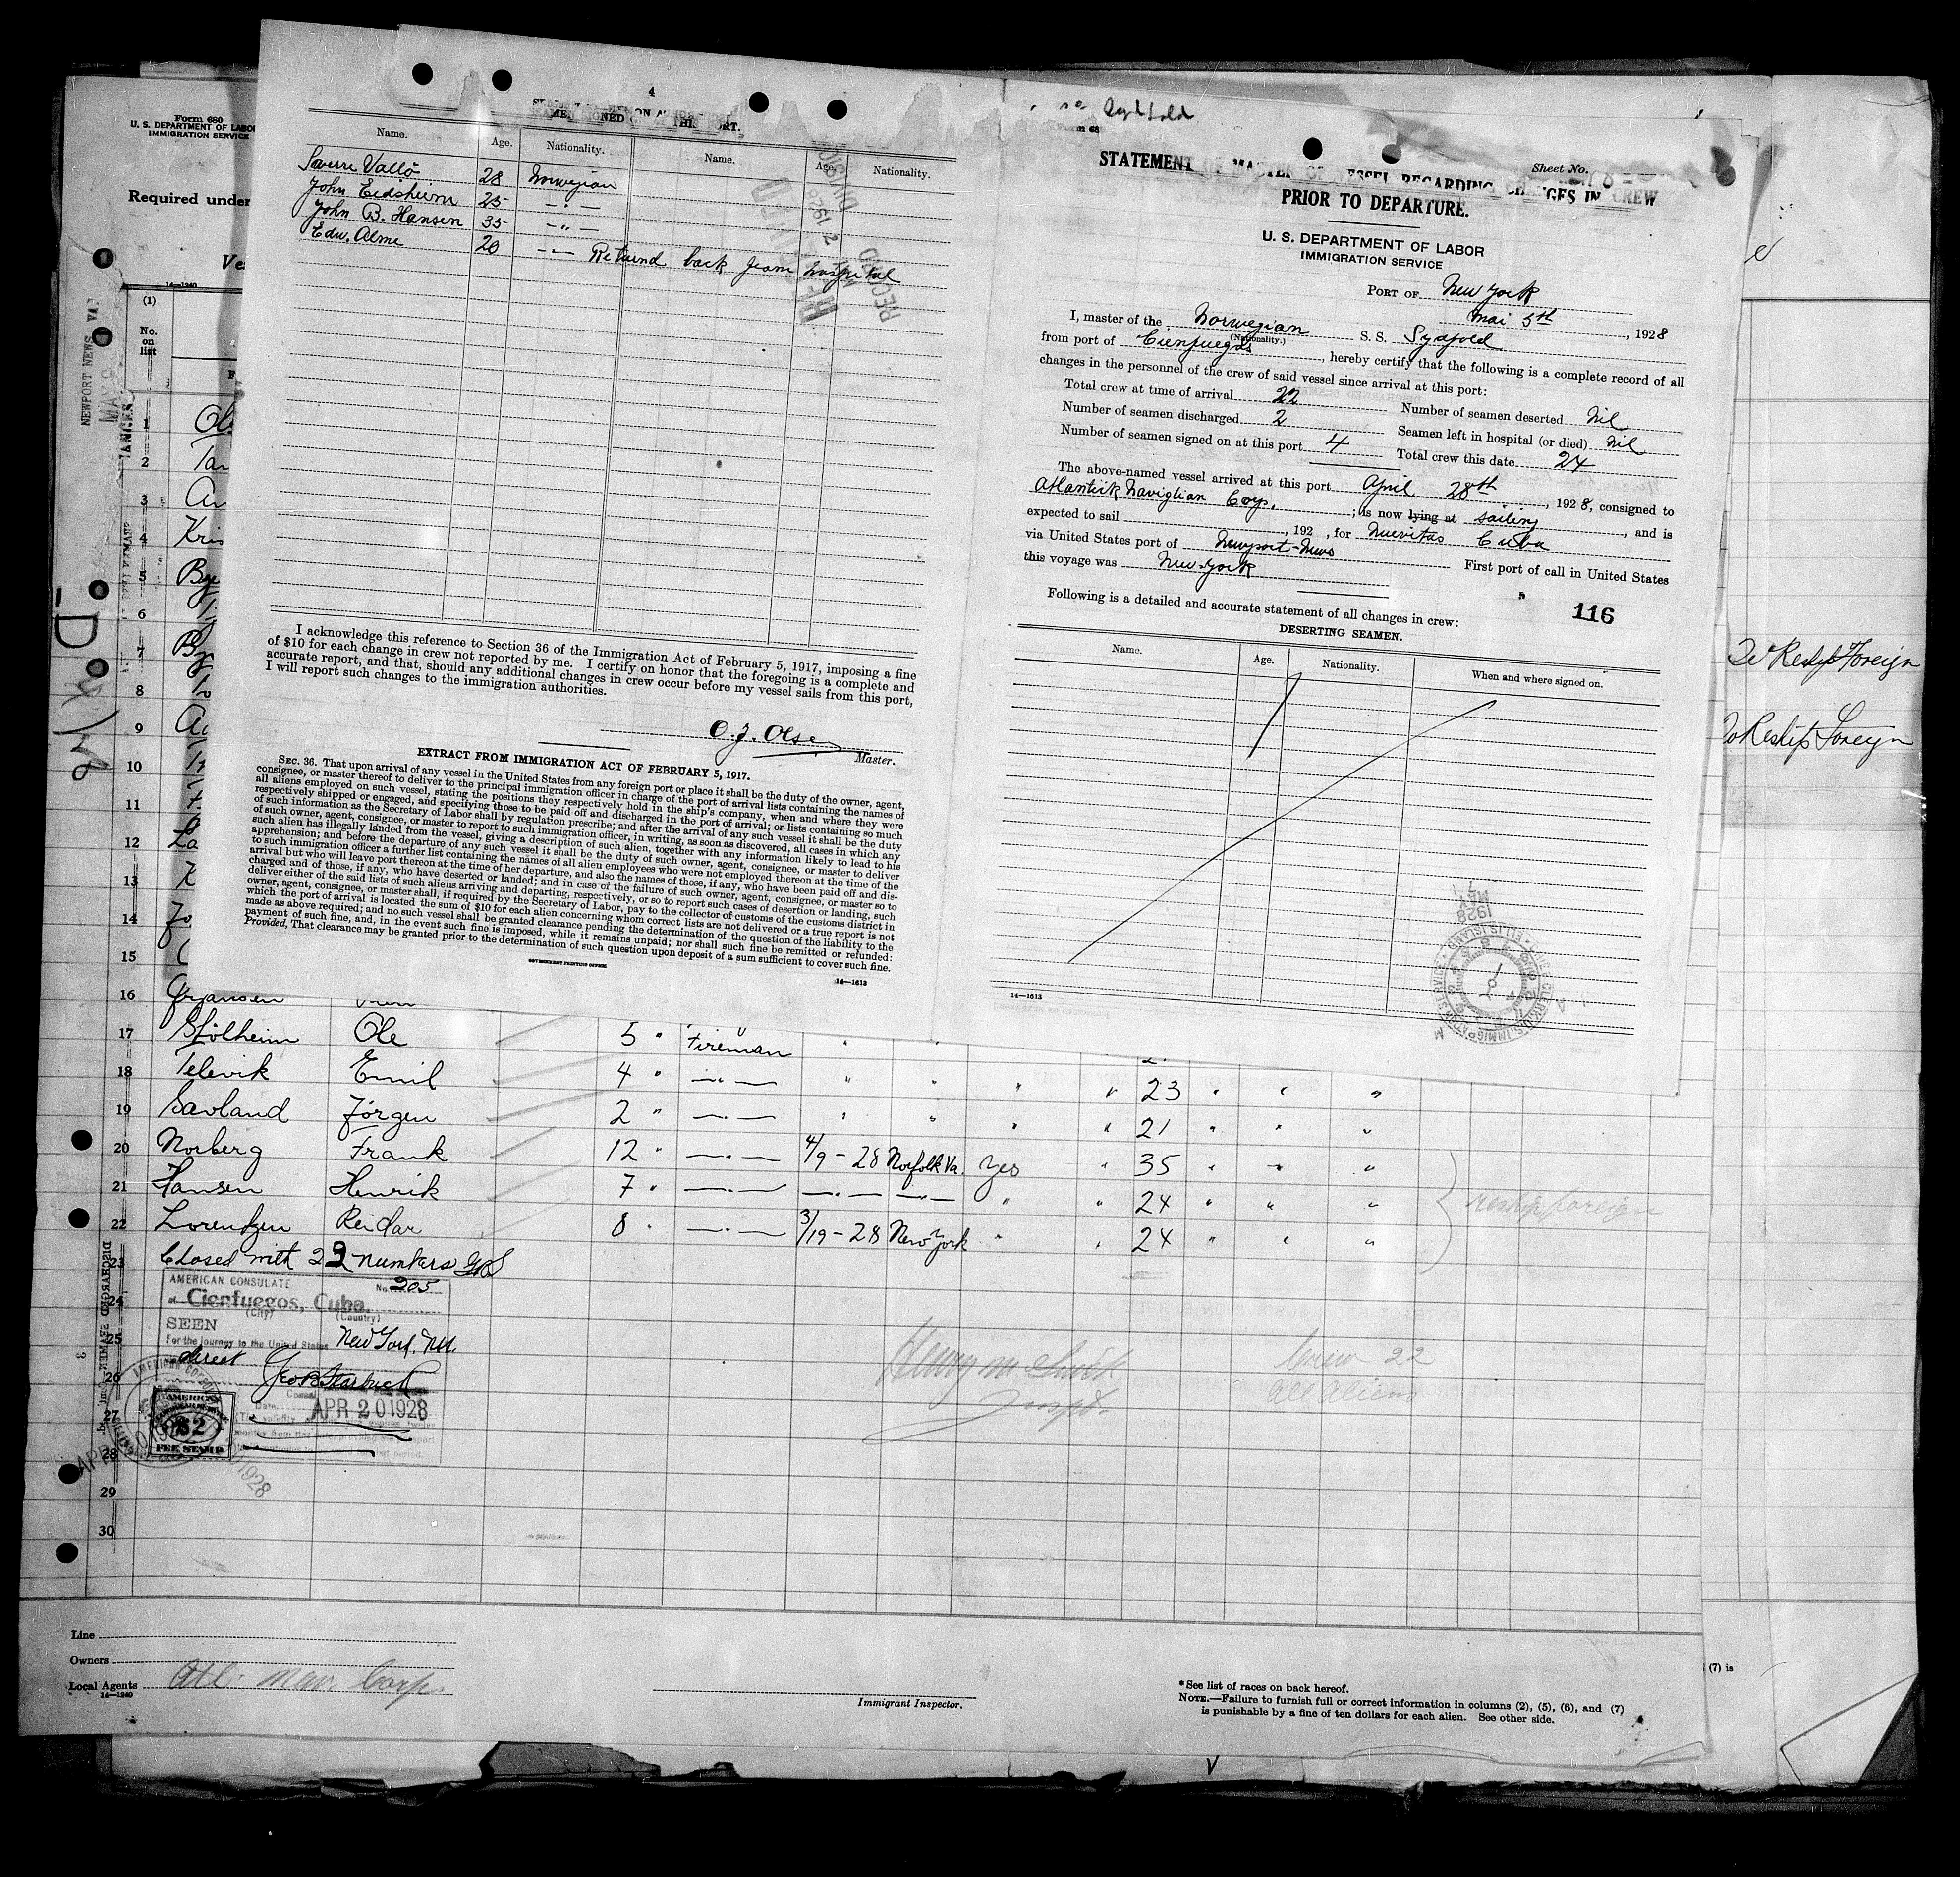 4
SEAMEN SIGNED ON AT THIS PORT.
Name. Age. Nationality. Name. Age. Nationality.
Sverre Vallö 28 Norwegian
John Eidsheim 25 — " —
John B. Hansen 35 — " —
Edw. Alme 20 — " — Returnd back from hospital
I acknowledge this reference to Section 36 of the Immigration Act of February 5, 1917, imposing a fine
of $10 for each change in crew not reported by me. I certify on honor that the foregoing is a complete and
accurate report, and that, should any additional changes in crew occur before my vessel sails from this port,
I will report such changes to the immigration authorities.
O. J. Olsen
Master.
EXTRACT FROM IMMIGRATION ACT OF FEBRUARY 5, 1917.
SEC. 36. That upon arrival of any vessel in the United States from any foreign port or place it shall be the duty of the owner, agent,
consignee, or master thereof to deliver to the principal immigration officer in charge of the port of arrival lists containing the names of
all aliens employed on such vessel, stating the positions they respectively hold in the ship's company, when and where they were
respectively shipped or engaged, and specifying those to be paid off and discharged in the port of arrival; or lists containing so much
of such information as the Secretary of Labor shall by regulation prescribe; and after the arrival of any such vessel it shall be the duty
of such owner, agent, consignee, or master to report to such immigration officer, in writing, as soon as discovered, all cases in which any
such alien has illegally landed from the vessel, giving a description of such alien, together with any information likely to lead to his
apprehension; and before the departure of any such vessel it shall be the duty of such owner, agent, consignee, or master to deliver
to such immigration officer a further list containing the names of all alien employees who were not employed thereon at the time of the
arrival but who will leave port thereon at the time of her departure, and also the names of those, if any, who have been paid off and dis-
charged and of those, if any, who have deserted or landed; and in case of the failure of such owner, agent, consignee, or master so to
deliver either of the said lists of such aliens arriving and departing, respectively, or so to report such cases of desertion or landing, such
owner, agent, consignee, or master shall, if required by the Secretary of Labor, pay to the collector of customs of the customs district in
which the port of arrival is located the sum of $10 for each alien concerning whom correct lists are not delivered or a true report is not
made as above required; and no such vessel shall be granted clearance pending the determination of the question of the liability to the
payment of such fine, and, in the event such fine is imposed, while it remains unpaid; nor shall such fine be remitted or refunded:
Provided, That clearance may be granted prior to the determination of such question upon deposit of a sum sufficient to cover such fine.
GOVERNMENT PRINTING OFFICE
14—1613
Sheet No.
STATEMENT OF MASTER OF VESSEL REGARDING CHANGES IN CREW
PRIOR TO DEPARTURE.
U. S. DEPARTMENT OF LABOR
IMMIGRATION SERVICE
PORT OF New York
mai 5th, 1928
I, master of the Norwegian S. S. Sygfold
(Nationality.)
from port of Cienfuegos, hereby certify that the following is a complete record of all
changes in the personnel of the crew of said vessel since arrival at this port:
Total crew at time of arrival 22 Number of seamen deserted Nil
Number of seamen discharged 2 Seamen left in hospital (or died) Nil
Number of seamen signed on at this port 4 Total crew this date 24
The above-named vessel arrived at this port April 28th, 1928, consigned to
Atlantik Navigtian Corp.; is now lying at sailing, and is
expected to sail , 192 , for Nuevitas Cuba
via United States port of Newport-News First port of call in United States
this voyage was New-York
Following is a detailed and accurate statement of all changes in crew:
116
DESERTING SEAMEN.
Name. Age. Nationality. When and where signed on.
MAY 1928
ELLIS ISLAND
14—1613
Form 680
U. S. DEPARTMENT OF LABOR
IMMIGRATION SERVICE
Required under
14—1240
NEWPORT NEWS, VA.
(1)
No. on list
1
2
3
4 Kris
5
6
7
8
9
10
11
12
13
14
15
16
17 Stölheim Ole 5 " Fireman
18 Televik Emil 4 " — " — 23
19 Savland Jörgen 2 " — " — 21
20 Norberg Frank 12 " — " — 4/9-28 Norfolk Va. Yes " 35
21 Hansen Henrik 7 " — " — — " — — " — " " 24
22 Lorentzen Reidar 8 " — " — 3/19-28 New York " " 24
reship foreign
23 Closed with 22 numbers
24
25
26
27
28
29
30
AMERICAN CONSULATE No. 205
at Cienfuegos, Cuba.
(City) (Country)
SEEN
For the journey to the United States New York, N.Y.
direct
APR 20 1928
AMERICAN
$2
FEE STAMP
Henry M. Smith
Inspt.
Crew 22
all aliens
To Reship Foreign
To Reship Foreign
Line
Owners
Local Agents Atl. Nav. Corp.
14—1240
Immigrant Inspector.
*See list of races on back hereof.
NOTE.—Failure to furnish full or correct information in columns (2), (5), (6), and (7)
is punishable by a fine of ten dollars for each alien. See other side.
(7) is